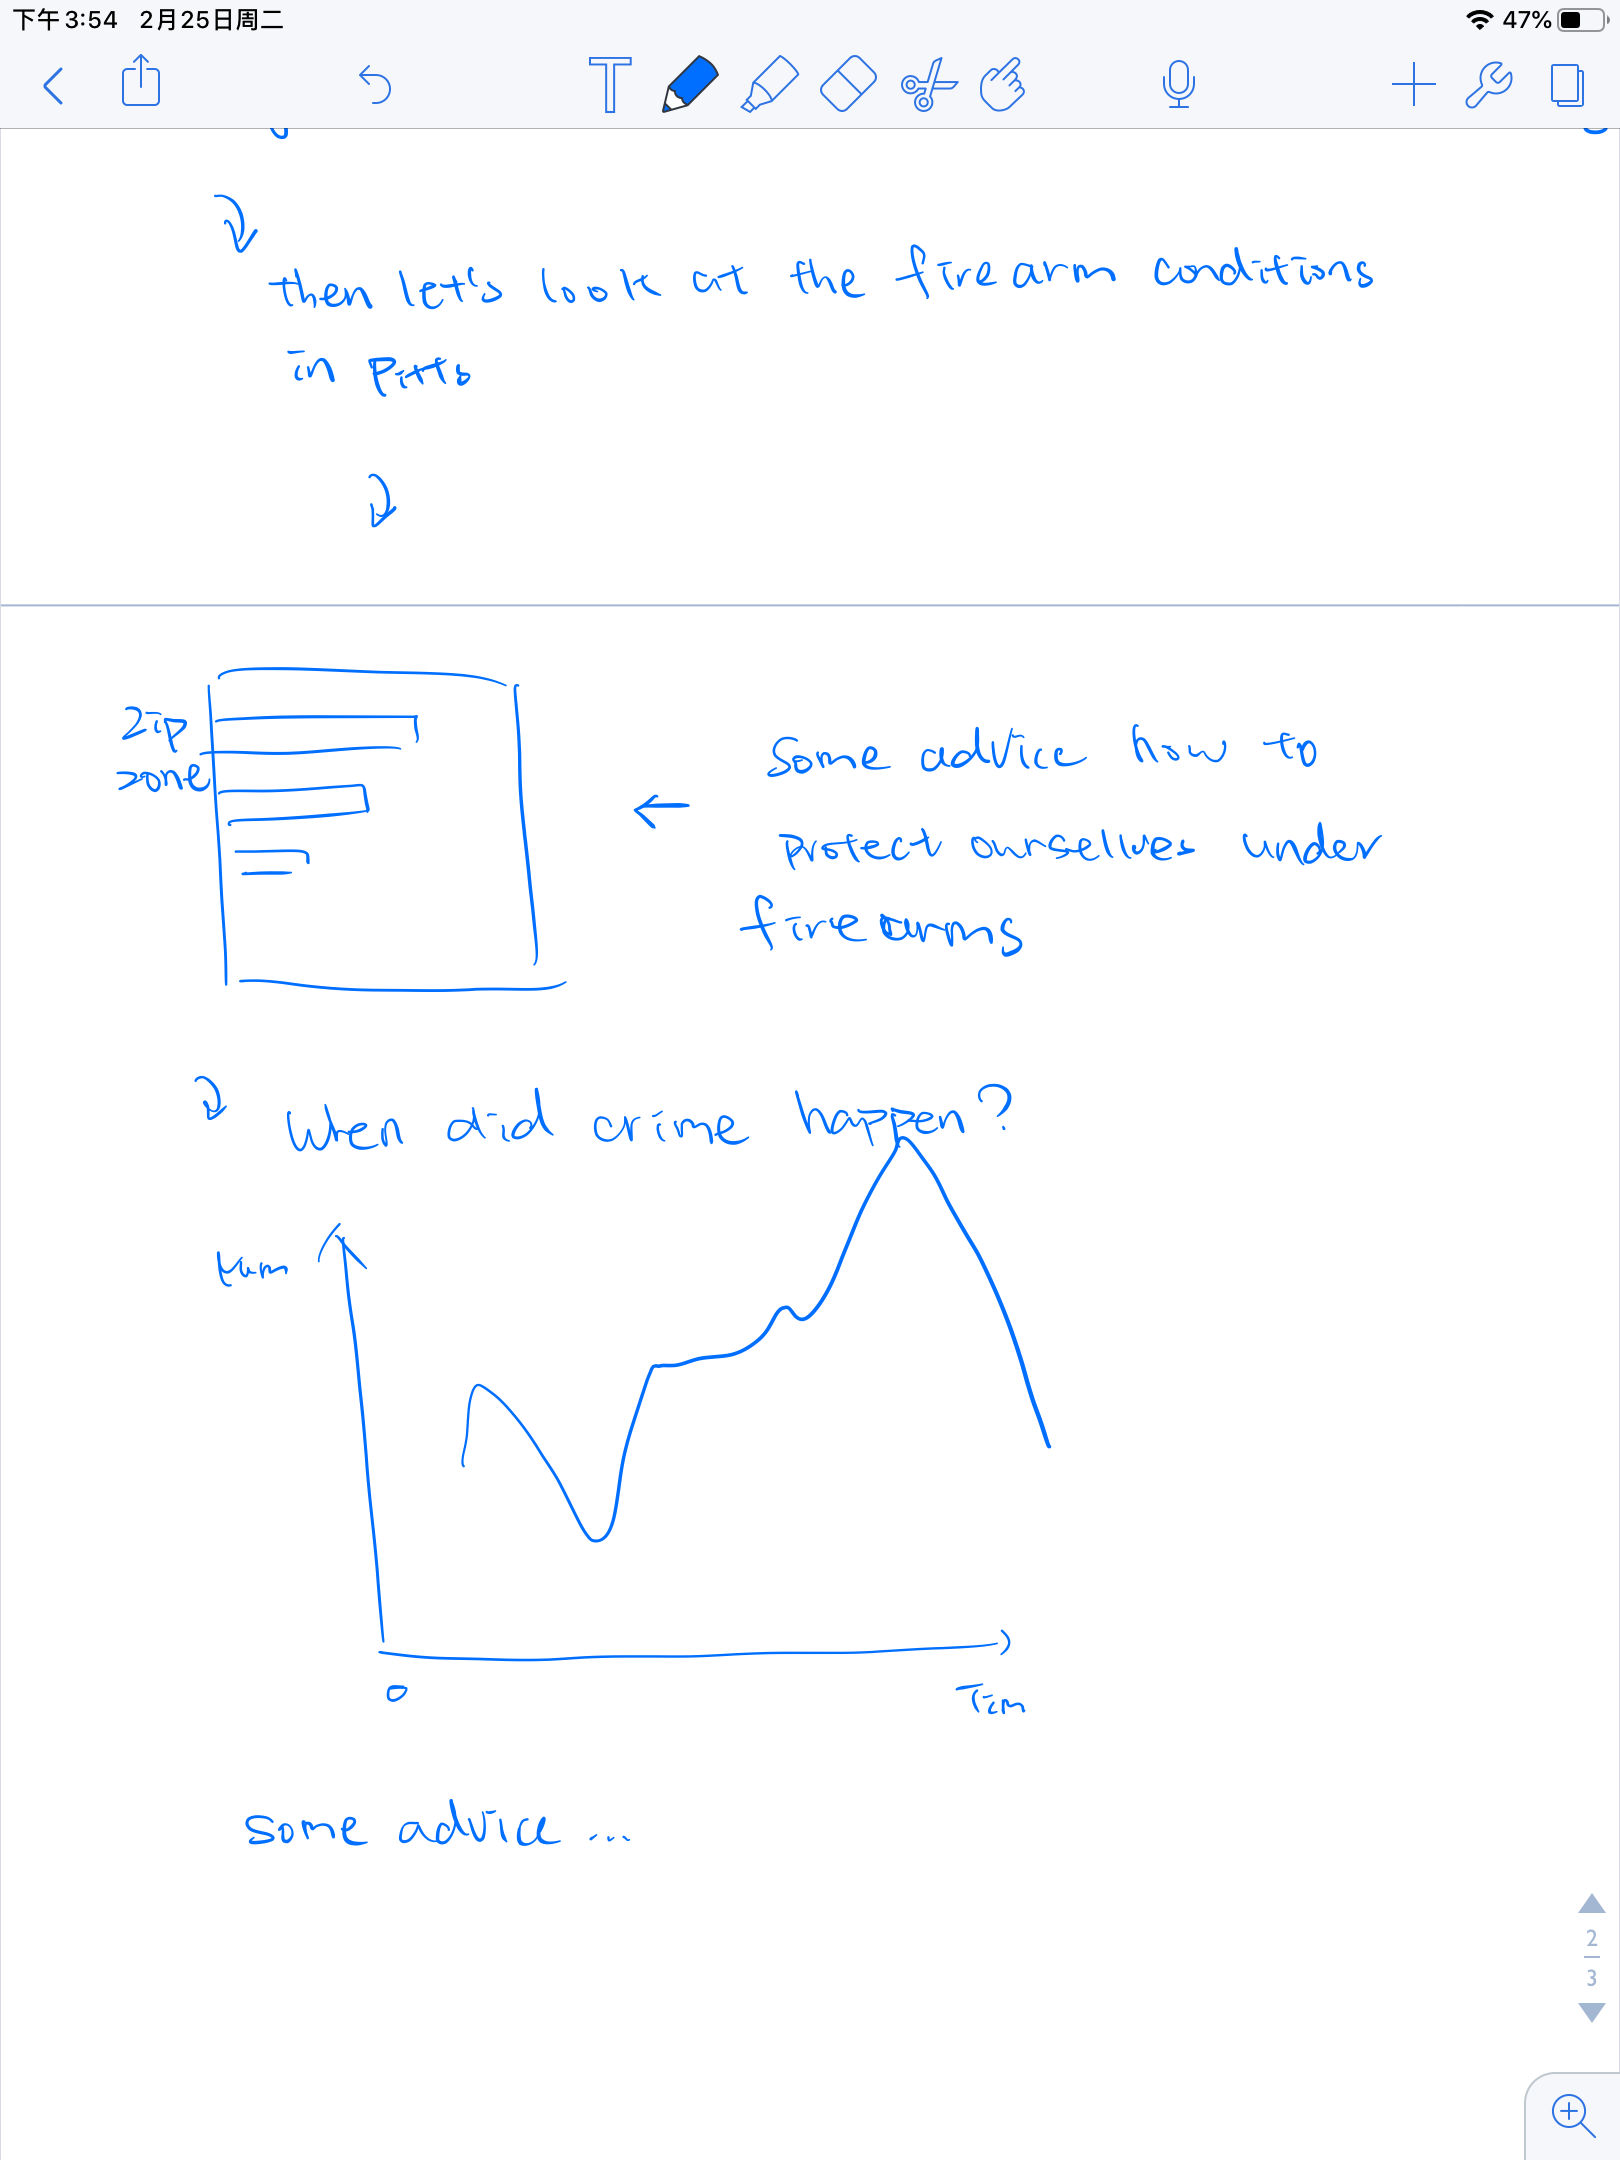 下午3:54 2月25日周二
47%
then let's look at the firearm conditions
in Pitts
zip
zone
Some advice how to
protect ourselves under
firearms
When did crime happen?
0
Tim
some advice ...
2
3